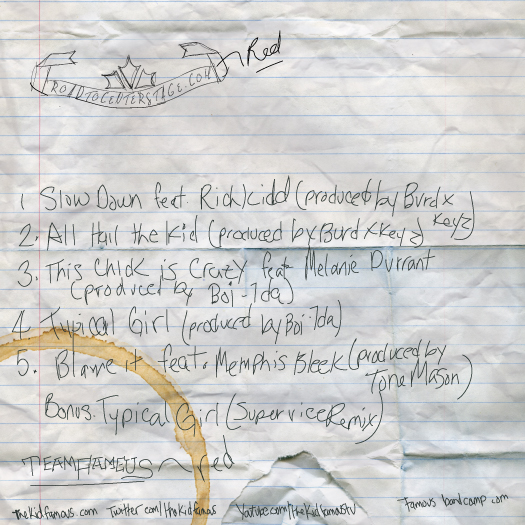 ROADTOCENTERSTAGE.COM
Red
1 Slow Down feat. Rich Kidd (produced by Burd x
Keyz)
2. All Hail the Kid (produced by Burd x Keyz)
3. This Chick is Crazy feat. Melanie Durrant
(produced by Boi-1da)
4. Typical Girl (produced by Boi-1da)
5. Blame it feat. Memphis Bleek (produced by
Tone Mason)
Bonus. Typical Girl (Supervice Remix)
TEAMFAMOUS red
thekidfamous.com Twitter.com/thekidfamous Youtube.com/thekidfamoustv Famous.bandcamp.com